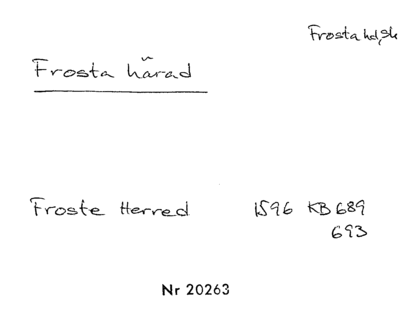 Frosta hd, Sk
Frosta härad
Froste Herred 1596 KB 689
693
Nr 20263